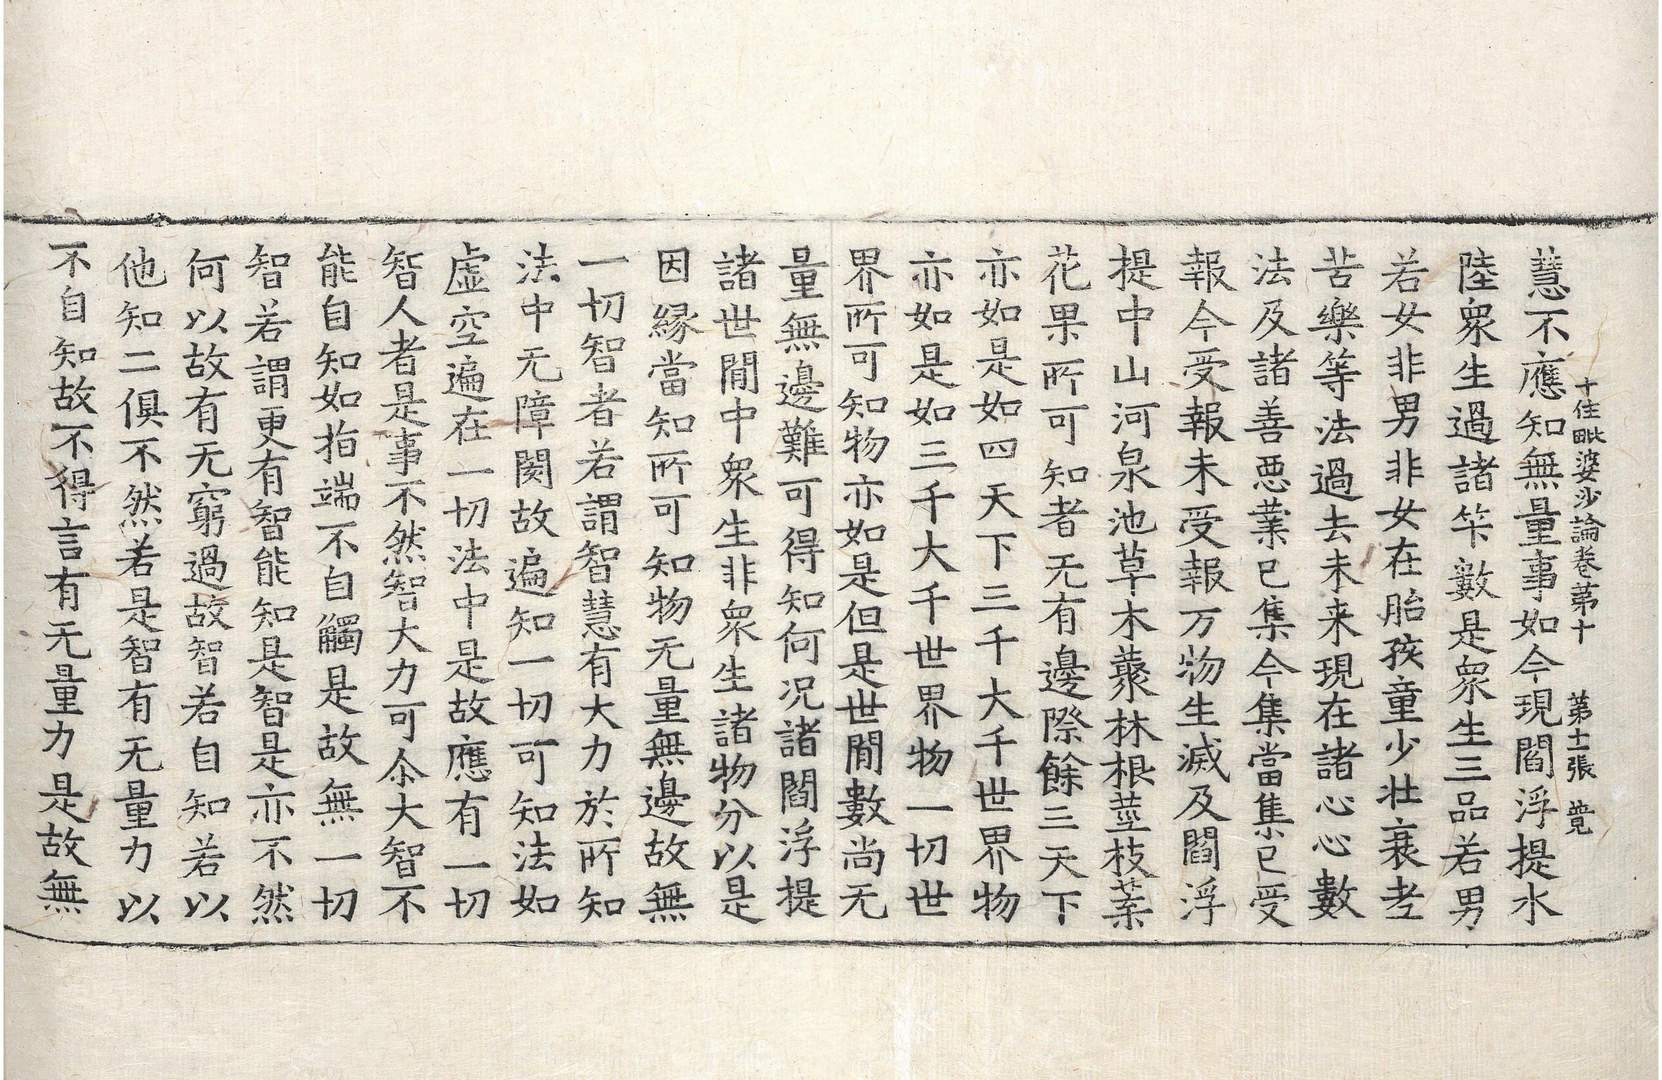 十住毗婆沙論卷第十 第十二張 競
慧不應知無量事如今現閻浮提水
陸衆生過諸竿數是衆生三品若男
若女非男非女在胎孩童少壯衰老
苦樂等法過去未来現在諸心心數
法及諸善惡業已集今集當集已受
報今受報未受報万物生滅及閻浮
提中山河泉池草木藂林根莖枝葉
花果所可知者无有邊際餘三天下
亦如是如四天下三千大千世界物
亦如是如三千大千世界物一切世
界所可知物亦如是但是世閒數尚无
量無邊難可得知何况諸閻浮提
諸世閒中衆生非衆生諸物分以是
因縁當知所可知物无量無邊故無
一切智者若謂智慧有大力於所知
法中无障閡故遍知一切可知法如
虚空遍在一切法中是故應有一切
智人者是事不然智大力可尒大智不
能自知如指端不自觸是故無一切
智若謂更有智能知是智是亦不然
何以故有无窮過故智若自知若以
他知二俱不然若是智有无量力以
不自知故不得言有无量力是故無